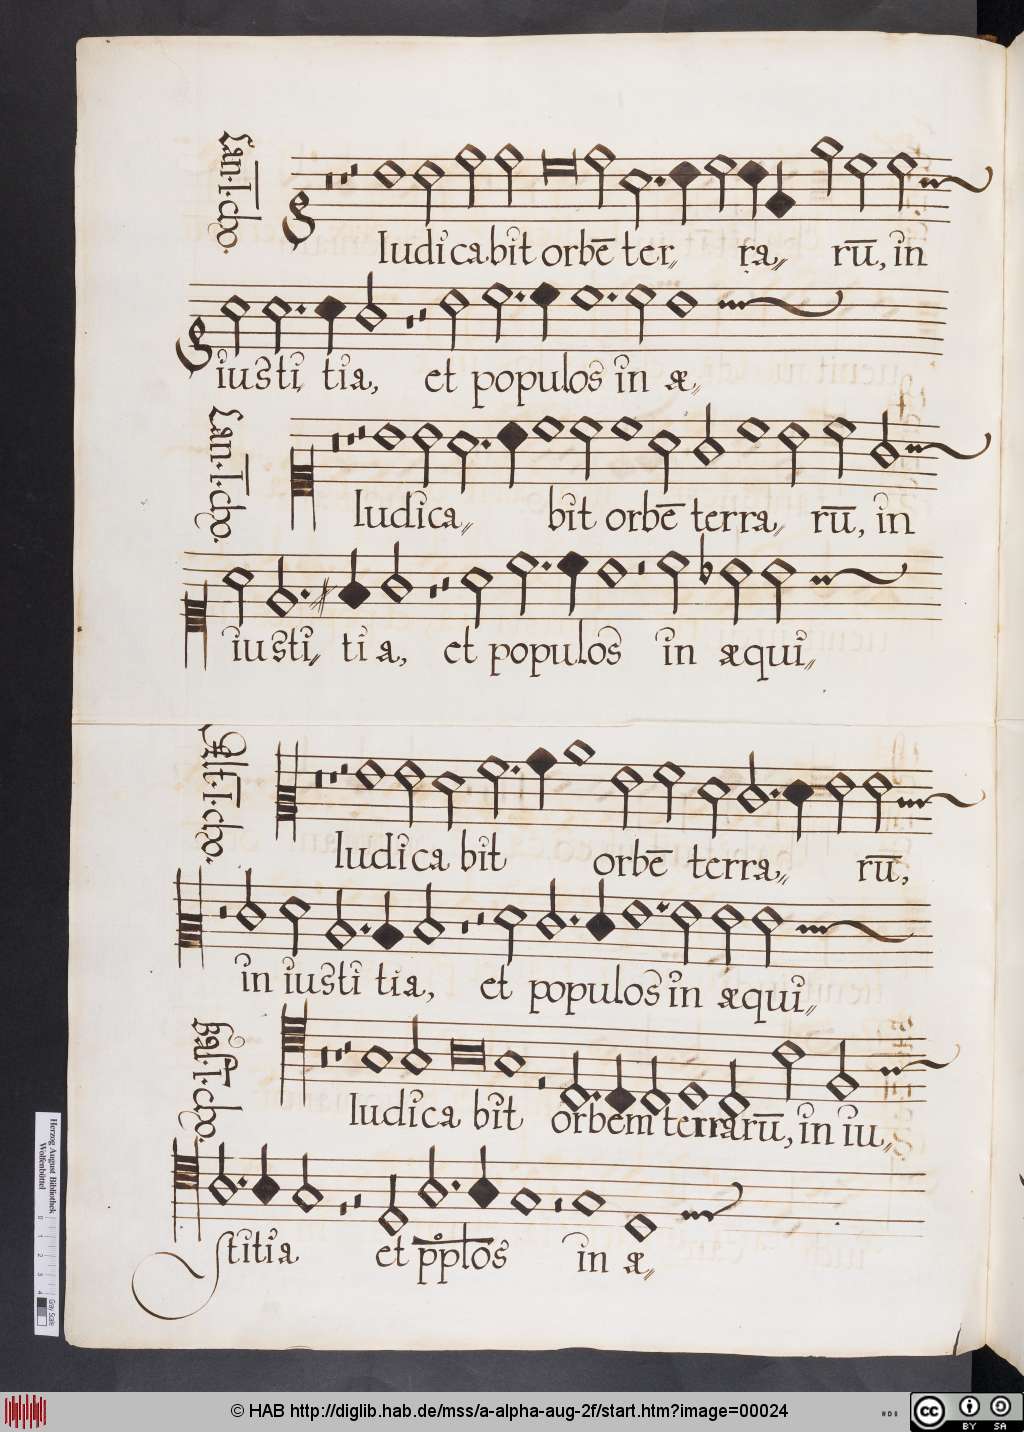 Can. I. cho.
Iudica bit orbē ter„ ra„ rū, in
iusti, tia, et populos in æ„
Can. I. cho.
Iudica„ bit orbē terra„ rū, in
iusti„ ti a, et populos in æqui„
Alt. I. cho.
Iudica bit orbē terra„ rū,
in iusti tia, et populos in æqui„
Bas. I. cho.
Iudica bit orbem terrarū, in iu„
stitia et pplos in æ„
Herzog August Bibliothek
Wolfenbüttel
0 1 2 3 4
Gray Scale
© HAB http://diglib.hab.de/mss/a-alpha-aug-2f/start.htm?image=00024
cc BY SA